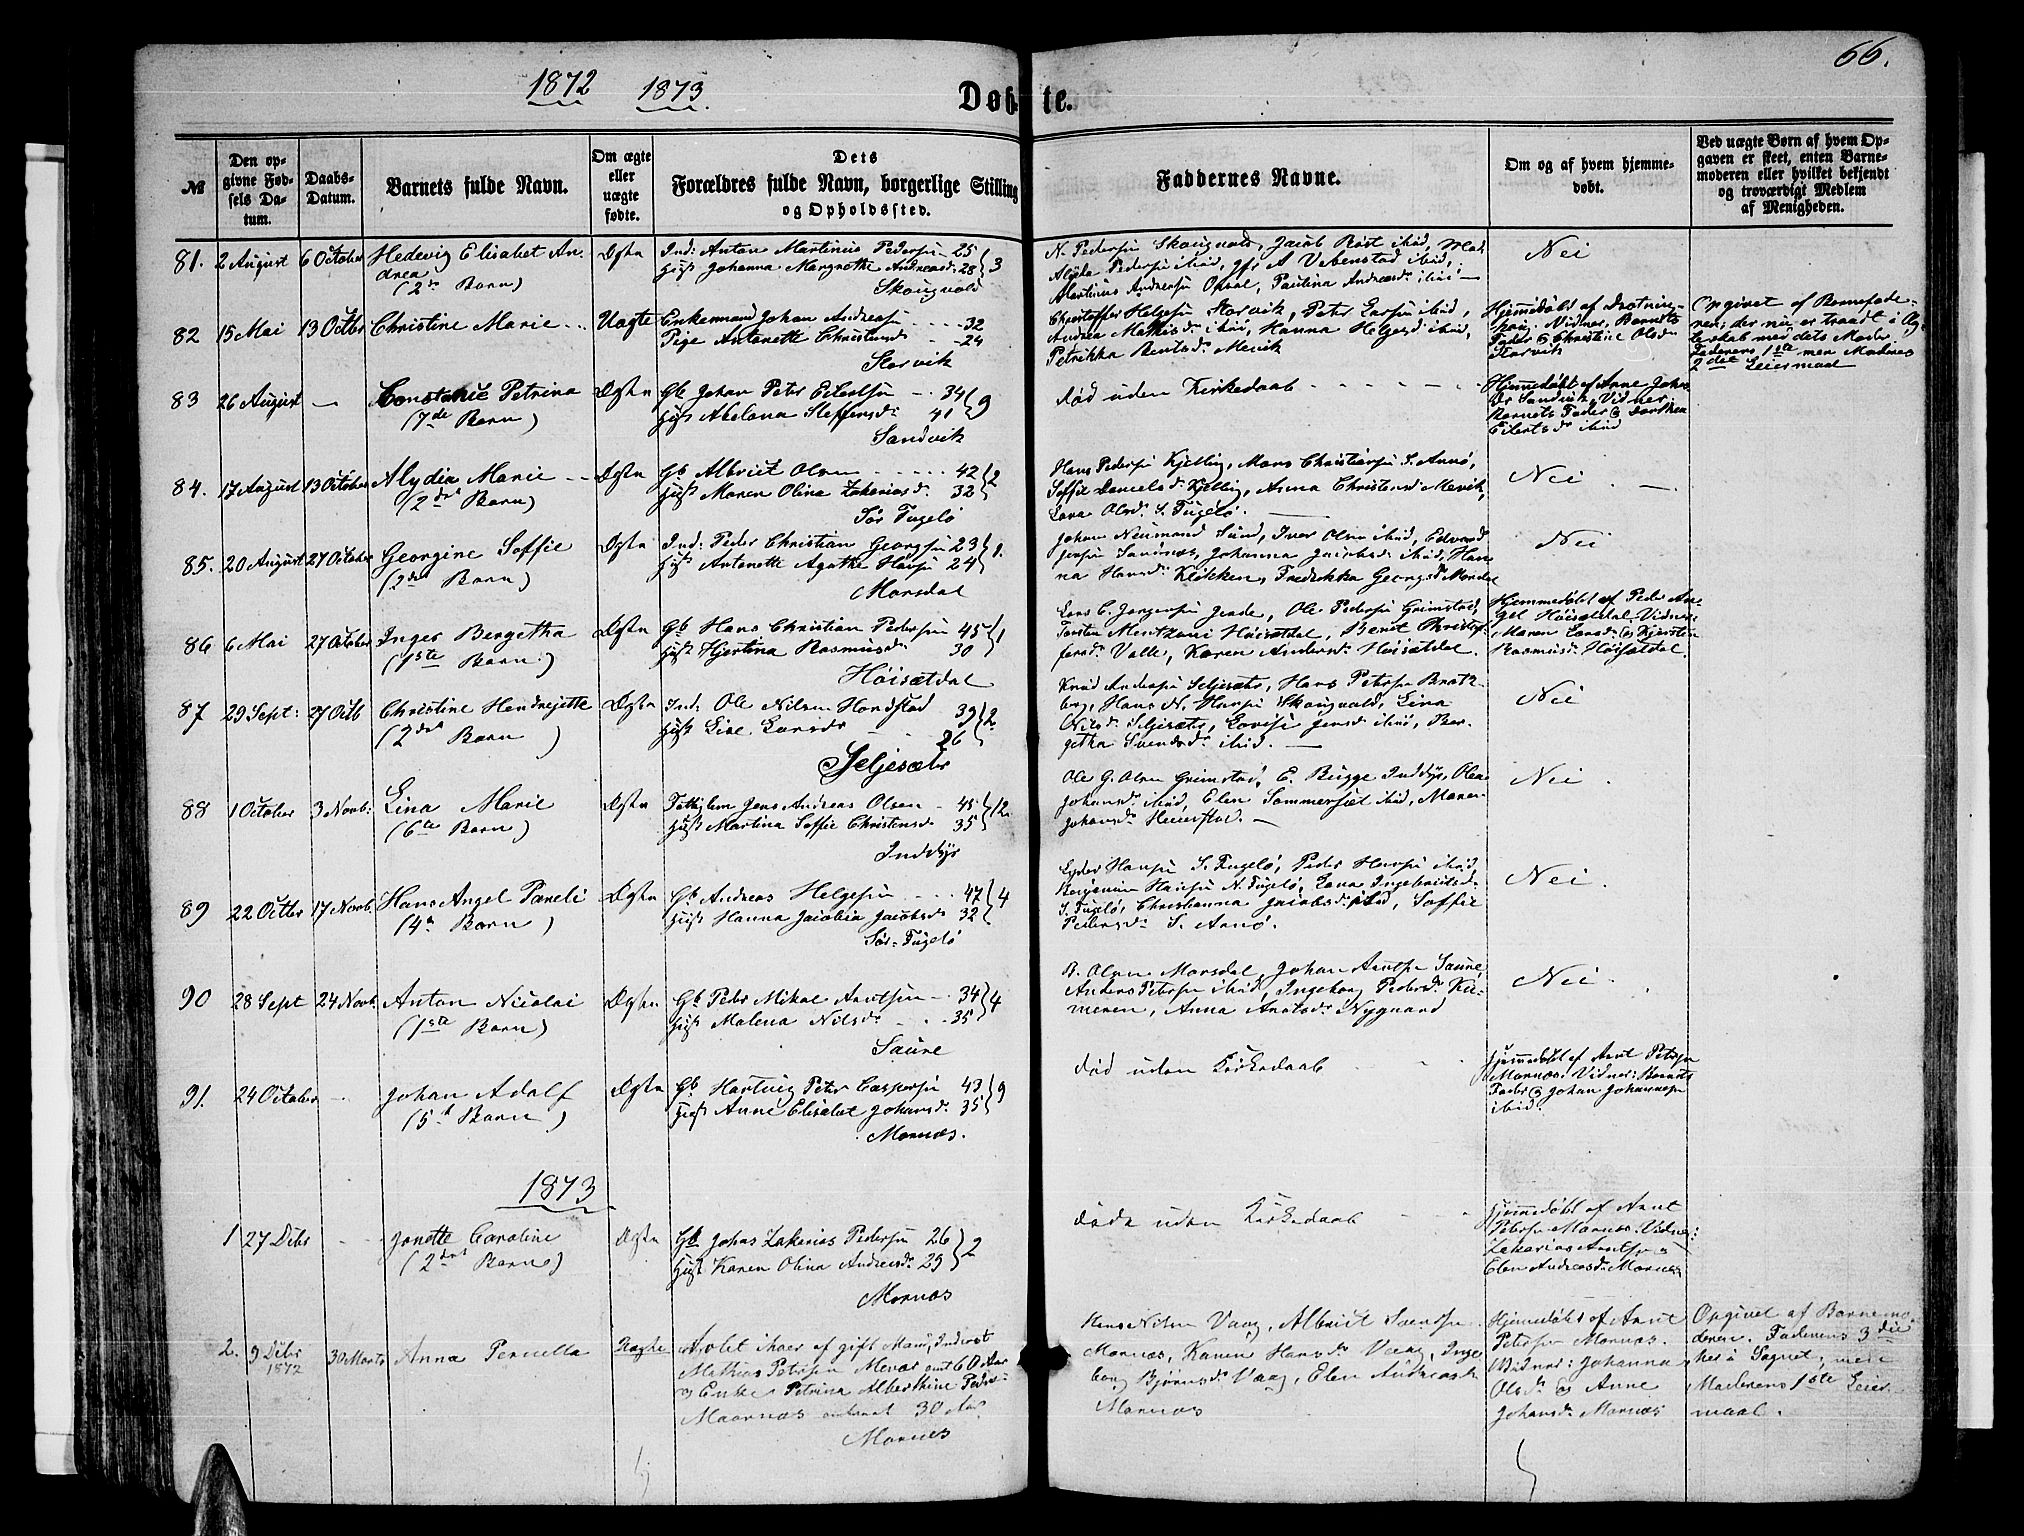 66.
1872 1873
Døbte.
№
Den opgivne Fødsels Datum.
Daabs-Datum.
Barnets fulde Navn.
Om ægte eller uægte fødte.
Dets Forældres fulde Navn, borgerlige Stilling og Opholdssted.
Faddernes Navne.
Om og af hvem hjemmedøbt.
Ved uægte Børn af hvem Opgaven er skeet, enten Barnemoderen eller hvilket bekjendt og troværdigt Medlem af Menigheden.
81. 2 August 6 October Hedevig Elisabet Andrea
(2 Barn)
Ægte
Ind: Anton Martinus Pedersen 25
Hust Johanna Margrethe Andreasd. 28 } 3
Skaugvold
N. Pedersen Skaugvold, Jacob Røst ibid,
Martinus Andersen Opsal, Paulina Andreasd. ibid
Nei
82 15 Mai 13 Octbr Christine Marie
Uægte
Enkemand Johan Andreasen 32
Pige Antonette Christensd 24
Storvik
Christoffer Helgesen Storvik, Peter Larsen ibid,
Andrea Mathisd. ibid, Hanna Helgesd. ibid,
Petrikka Bentsd. Mevik
Hjemmedøbt af
Vidner, Barnets
Fader & Christine Olsd.
Storvik
Opgivet af Barnefaderen; der nu er traadt i Ægteskab med dets Moder
Faderens 1ste men Moderens
2det Leiermaal
83 26 August — Constance Petrina
(7de Barn)
Ægte
Gb Johan Peter Eilertsen 34
Hust Abelona Steffensd. 41 } 9
Sandvik
død uden Kirkedaab
Hjemmedøbt af Anne Johansdr Sandvik, Vidner:
Barnets Fader & Dorthea
Eilertsd. ibid
84. 17 August 13 October Alydia Marie
(2det Barn)
Ægte
Gb Albrict Olsen 42
Hust Maren Olina Zakariasd. 32 } 2
Sør Fugelø
Hans Pedersen Kjelling, Mons Christiansen S. Arnø,
Soffie Danielsd. Kjelling, Anna Christensd. Mevik,
Lava Olsd. S. Fugelø.
Nei
85. 20 August 27 October Georgine Soffie
(2det Barn)
Ægte
Ind: Peder Christian Georgsen 23
Hust Antonette Agathe Hansd 24 } 1.
Morsdal
Johan Neumand Sund, Iver Olsen ibid, Edvard
Jensen Sandnes, Johanna Jacobsd. ibid, Hanna Hansd. Klokken, Fredrikka Georgsd. Morsdal
Nei
86 6 Mai 27 October Inger Bergetha
(1ste Barn)
Ægte
Gb Hans Christian Pedersen 45
Hust Hjertina Rasmusd. 30 } 1
Høisætdal
Lars C. Jørgensen Inde, Ole Pedersen Grimstad,
Torsten Mentzoni Høisætdal, Benet Christoffersd. Valle, Karen Andersd. Høisætdal.
Hjemmedøbt af Peder Angel Høisætdal. Vidner
Maren Larsd. & Kjersten
Rasmusd. Høisætdal.
87 29 Sept: 27 Octb Christine Hendrejette
(2det Barn)
Ægte
Ind: Ole Nilsen Hondstad 39
Hust Lise Larsdr 26 } 2
Seljesæter
Knud Andersen Seljesæter, Hans Petersen Bratberg, Hans N. Hansen Skaugvold, Lina
Nilsd. Seljesæter, Lovise Jensd. ibid, Bergetha Svendsd. ibid.
Nei
88 1 October 3 Novb: Lina Marie
(6te Barn)
Ægte
Fattiglem Jens Andreas Olsen 45
Hust Martina Soffie Christensd. 35 } 12
Inddyr
Ole G. Olsen Grimstad, E. Bugge Inddyr, Olea
Johansd. ibid, Elen Sommerset ibid, Maren
Johansd. Heierstad.
Nei
89 22 Octbr 17 Novb. Hans Angel Pareli
(4de Barn)
Ægte
Gb Andreas Helgesen 47
Hust Hanna Jacobia Jacobsd. 32 } 4
Sør-Fugelø
Lyder Hansen S. Fugelø, Peder Hansen ibid
Benjamin Hansen N. Fugelø, Lava Ingebrictsd.
S. Fugelø, Christianna Jacobsd. ibid, Soffie
Pedersd. S. Arnø.
Nei.
90 28 Sept 24 Novb. Anton Nicolai
(1ste Barn)
Ægte
Gb Peder Mikal Arntsen 34
Hust Malena Nilsd. 35 } 4
Saure
B. Olsen Morsdal, Johan Arntsen Saure,
Anders Petersen ibid, Ingeborg Pedersd. Kameren, Anna Arntsd. Nygaard
Nei.
91. 24 October Johan Adolf
(5te Barn)
Ægte
Gb Hartvig Peter Caspersen 43
Hust Anne Elisabet Johansd. 35 } 9
Mornæs.
død uden Kirkedaab
Hjemmedøbt af Arnt Petersen
Mornæs. Vidner: Barnets
Fader & Johan Johannesen
ibid.
1873
1 27 Dcbr Jonette Caroline
(2det Barn)
Ægte
Gb Johas Zakarias Pedersen 26
Hust Karen Olina Andreasd. 29 } 2
Mornæs
døde uden Kirkedaab
Hjemmedøbt af Arnt
Petersen Mornæs. Vidner:
Zakarias Arntsen &
Elen Andreasd. Mornæs
2. 9 Dcbr 1872 30 Marts Anna Pernella
Uægte
Avlet i hoer af gift Mand, Inderst
Mathias Petersen Mevær omt 60 Aar
og Enke Petrina Alberthine Peders.
Maarnæs omtrent 30 Aar
Mornæs
Hans Nilsen Vaag, Albrict Svendsen
Mornæs, Karen Hansd. Vaag, Ingeborg Bjørnsd. Vaag, Elen Andreasd.
Mornæs
Hjemmedøbt af Arnt
Petersen Mornæs.
Vidner: Johanna
Olsd. & Anne
Johansd. Mornæs
Opgivet af Barnemoderen. Faderens 3die
her i Sognet, men
Moderens 1ste Leiermaal.